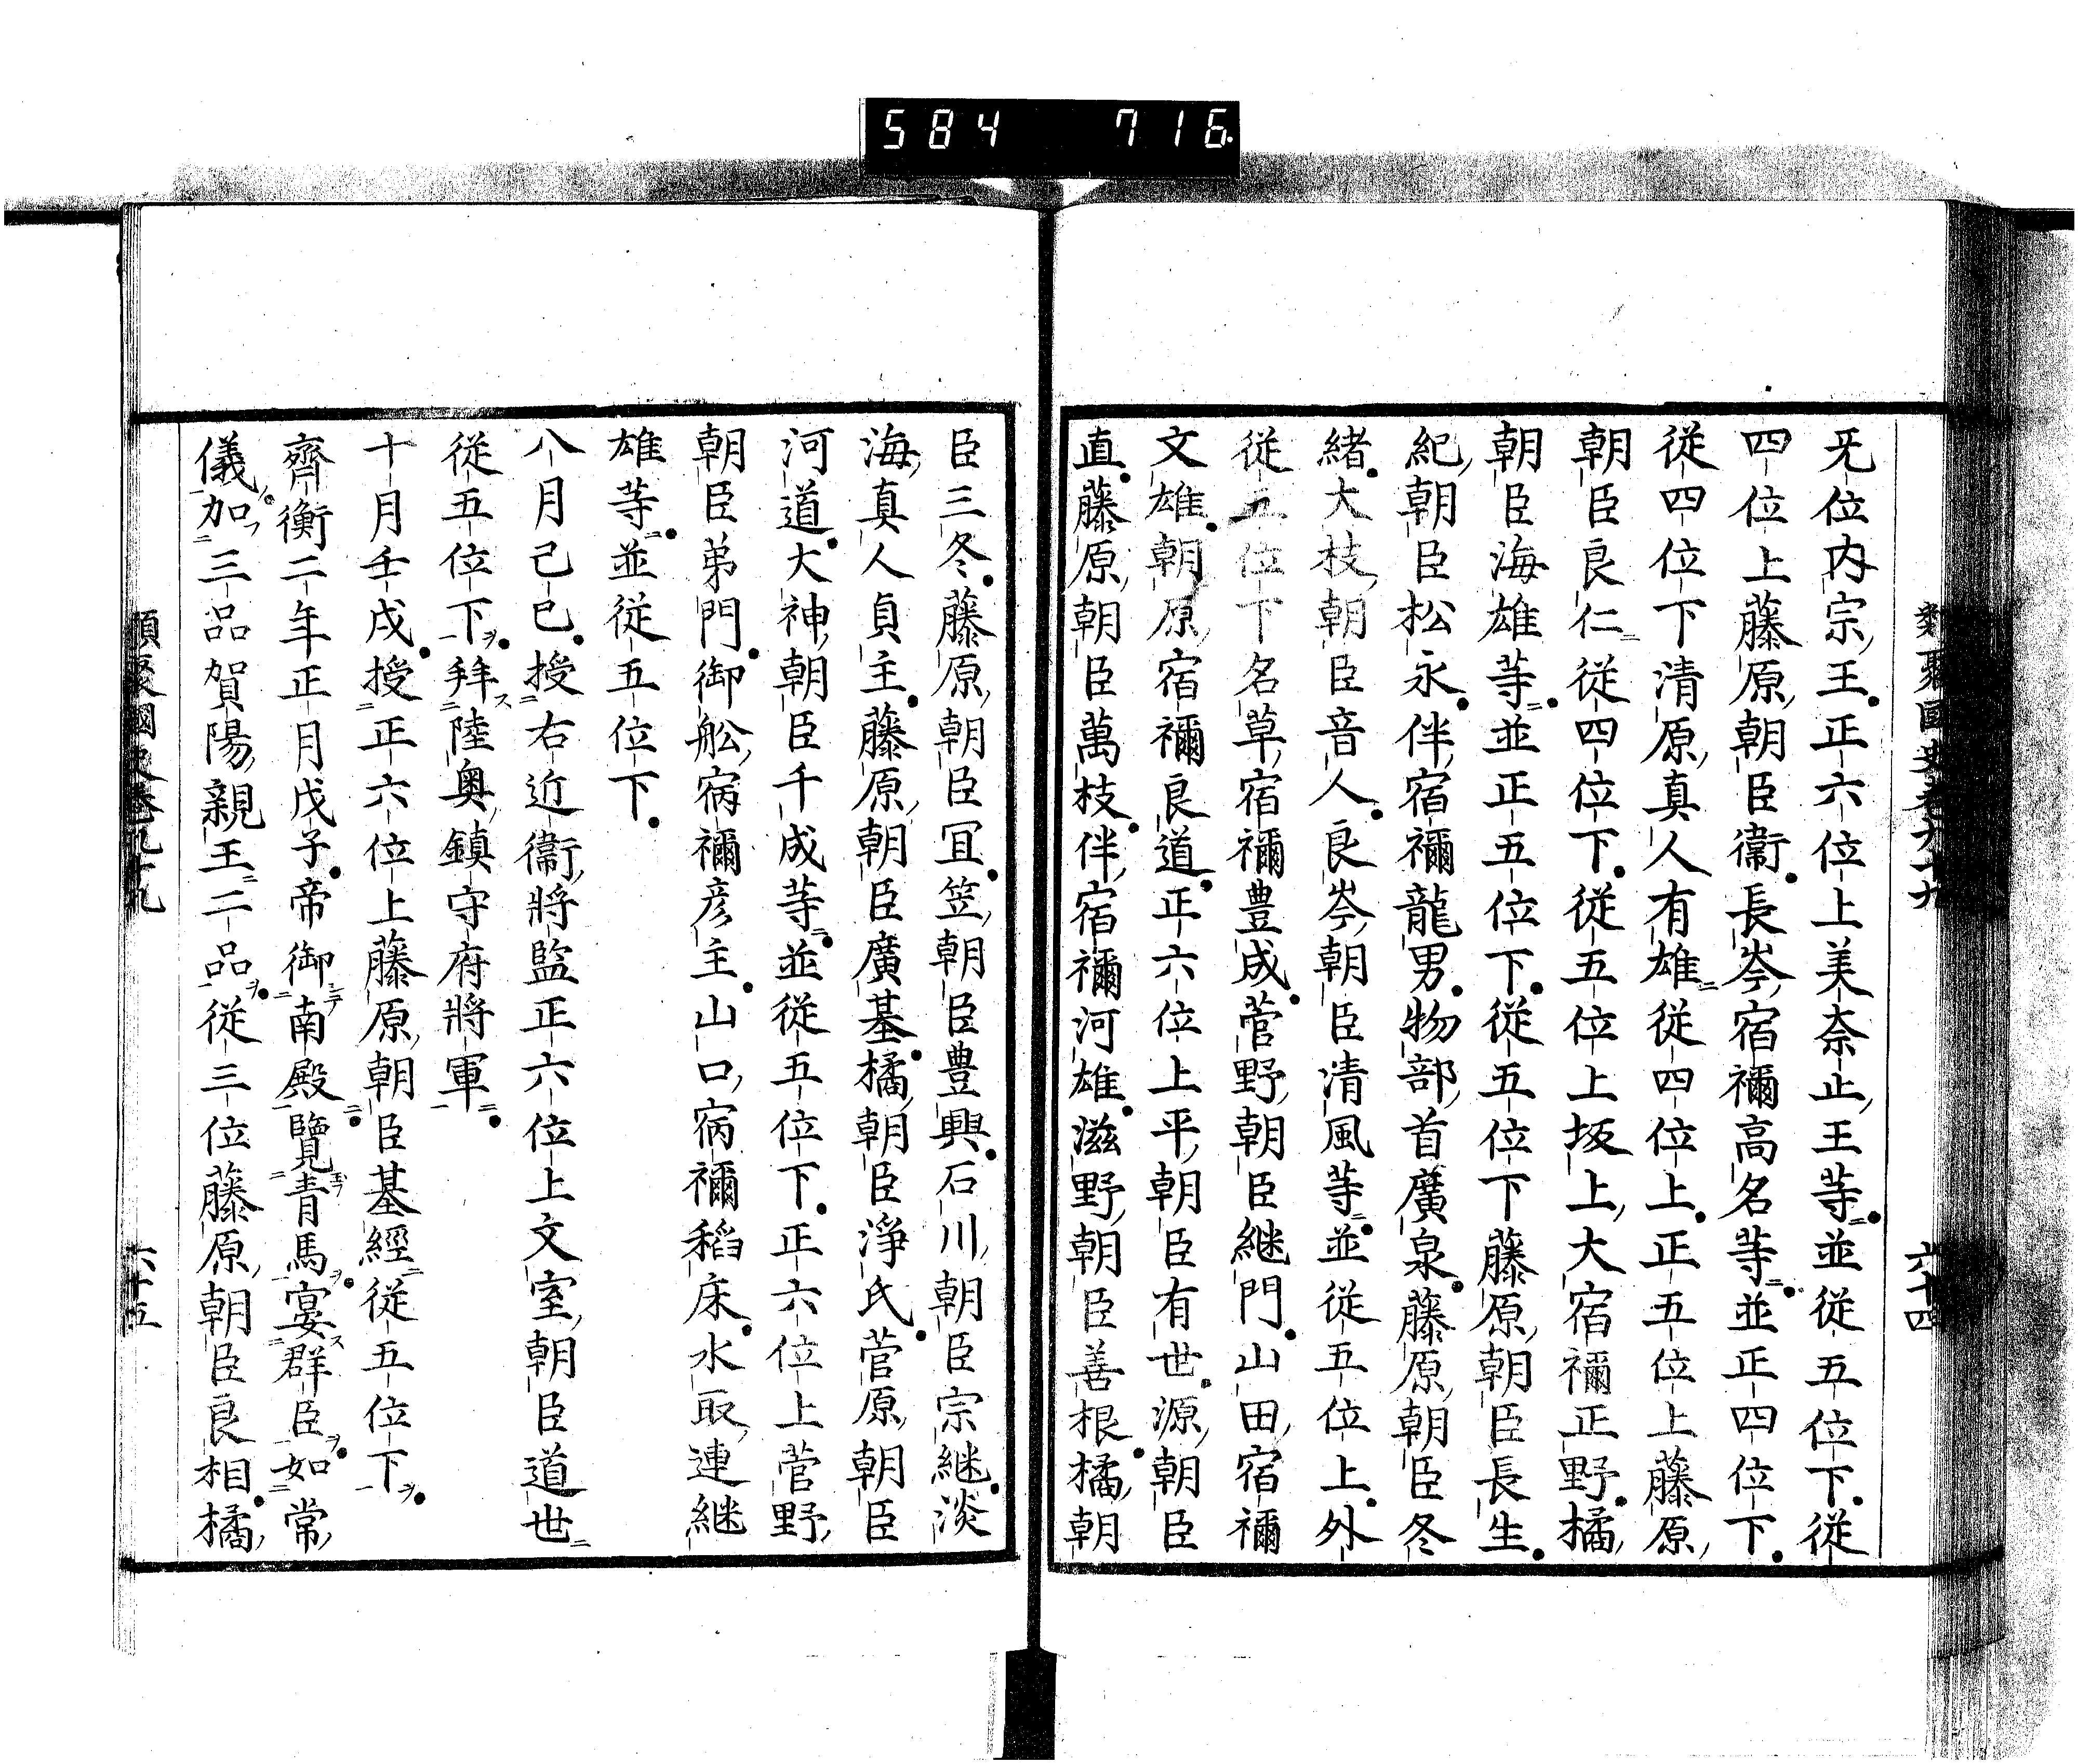 584 716
類聚國史卷九十九 六十四
无位内宗王正六位上美奈止王等並從五位下從
四位上藤原朝臣衞長岑宿禰高名等並正四位下
從四位下清原真人有雄從四位上正五位上藤原
朝臣良仁從四位下從五位上坂上大宿禰正野橘
朝臣海雄等並正五位下從五位下藤原朝臣長生
紀朝臣松永伴宿禰龍男物部首廣泉藤原朝臣冬
緒大枝朝臣音人良岑朝臣清風等並從五位上外
從五位下名草宿禰豊成菅野朝臣継門山田宿禰
文雄朝原宿禰良道正六位上平朝臣有世源朝臣
直藤原朝臣萬枝伴宿禰河雄滋野朝臣善根橘朝
臣三冬藤原朝臣冝笠朝臣豊興石川朝臣宗継淡
海真人貞主藤原朝臣廣基橘朝臣淨氏菅原朝臣
河道大神朝臣千成等並從五位下正六位上菅野
朝臣弟門御舩宿禰彦主山口宿禰稻床水取連継
雄等並從五位下
八月己巳授右近衞將監正六位上文室朝臣道世
從五位下拜陸奥鎮守府將軍
十月壬戌授正六位上藤原朝臣基經從五位下
齊衡二年正月戊子帝御南殿覽青馬宴群臣如常
儀加三品賀陽親王二品從三位藤原朝臣良相橘
類聚國史卷九十九 六十五